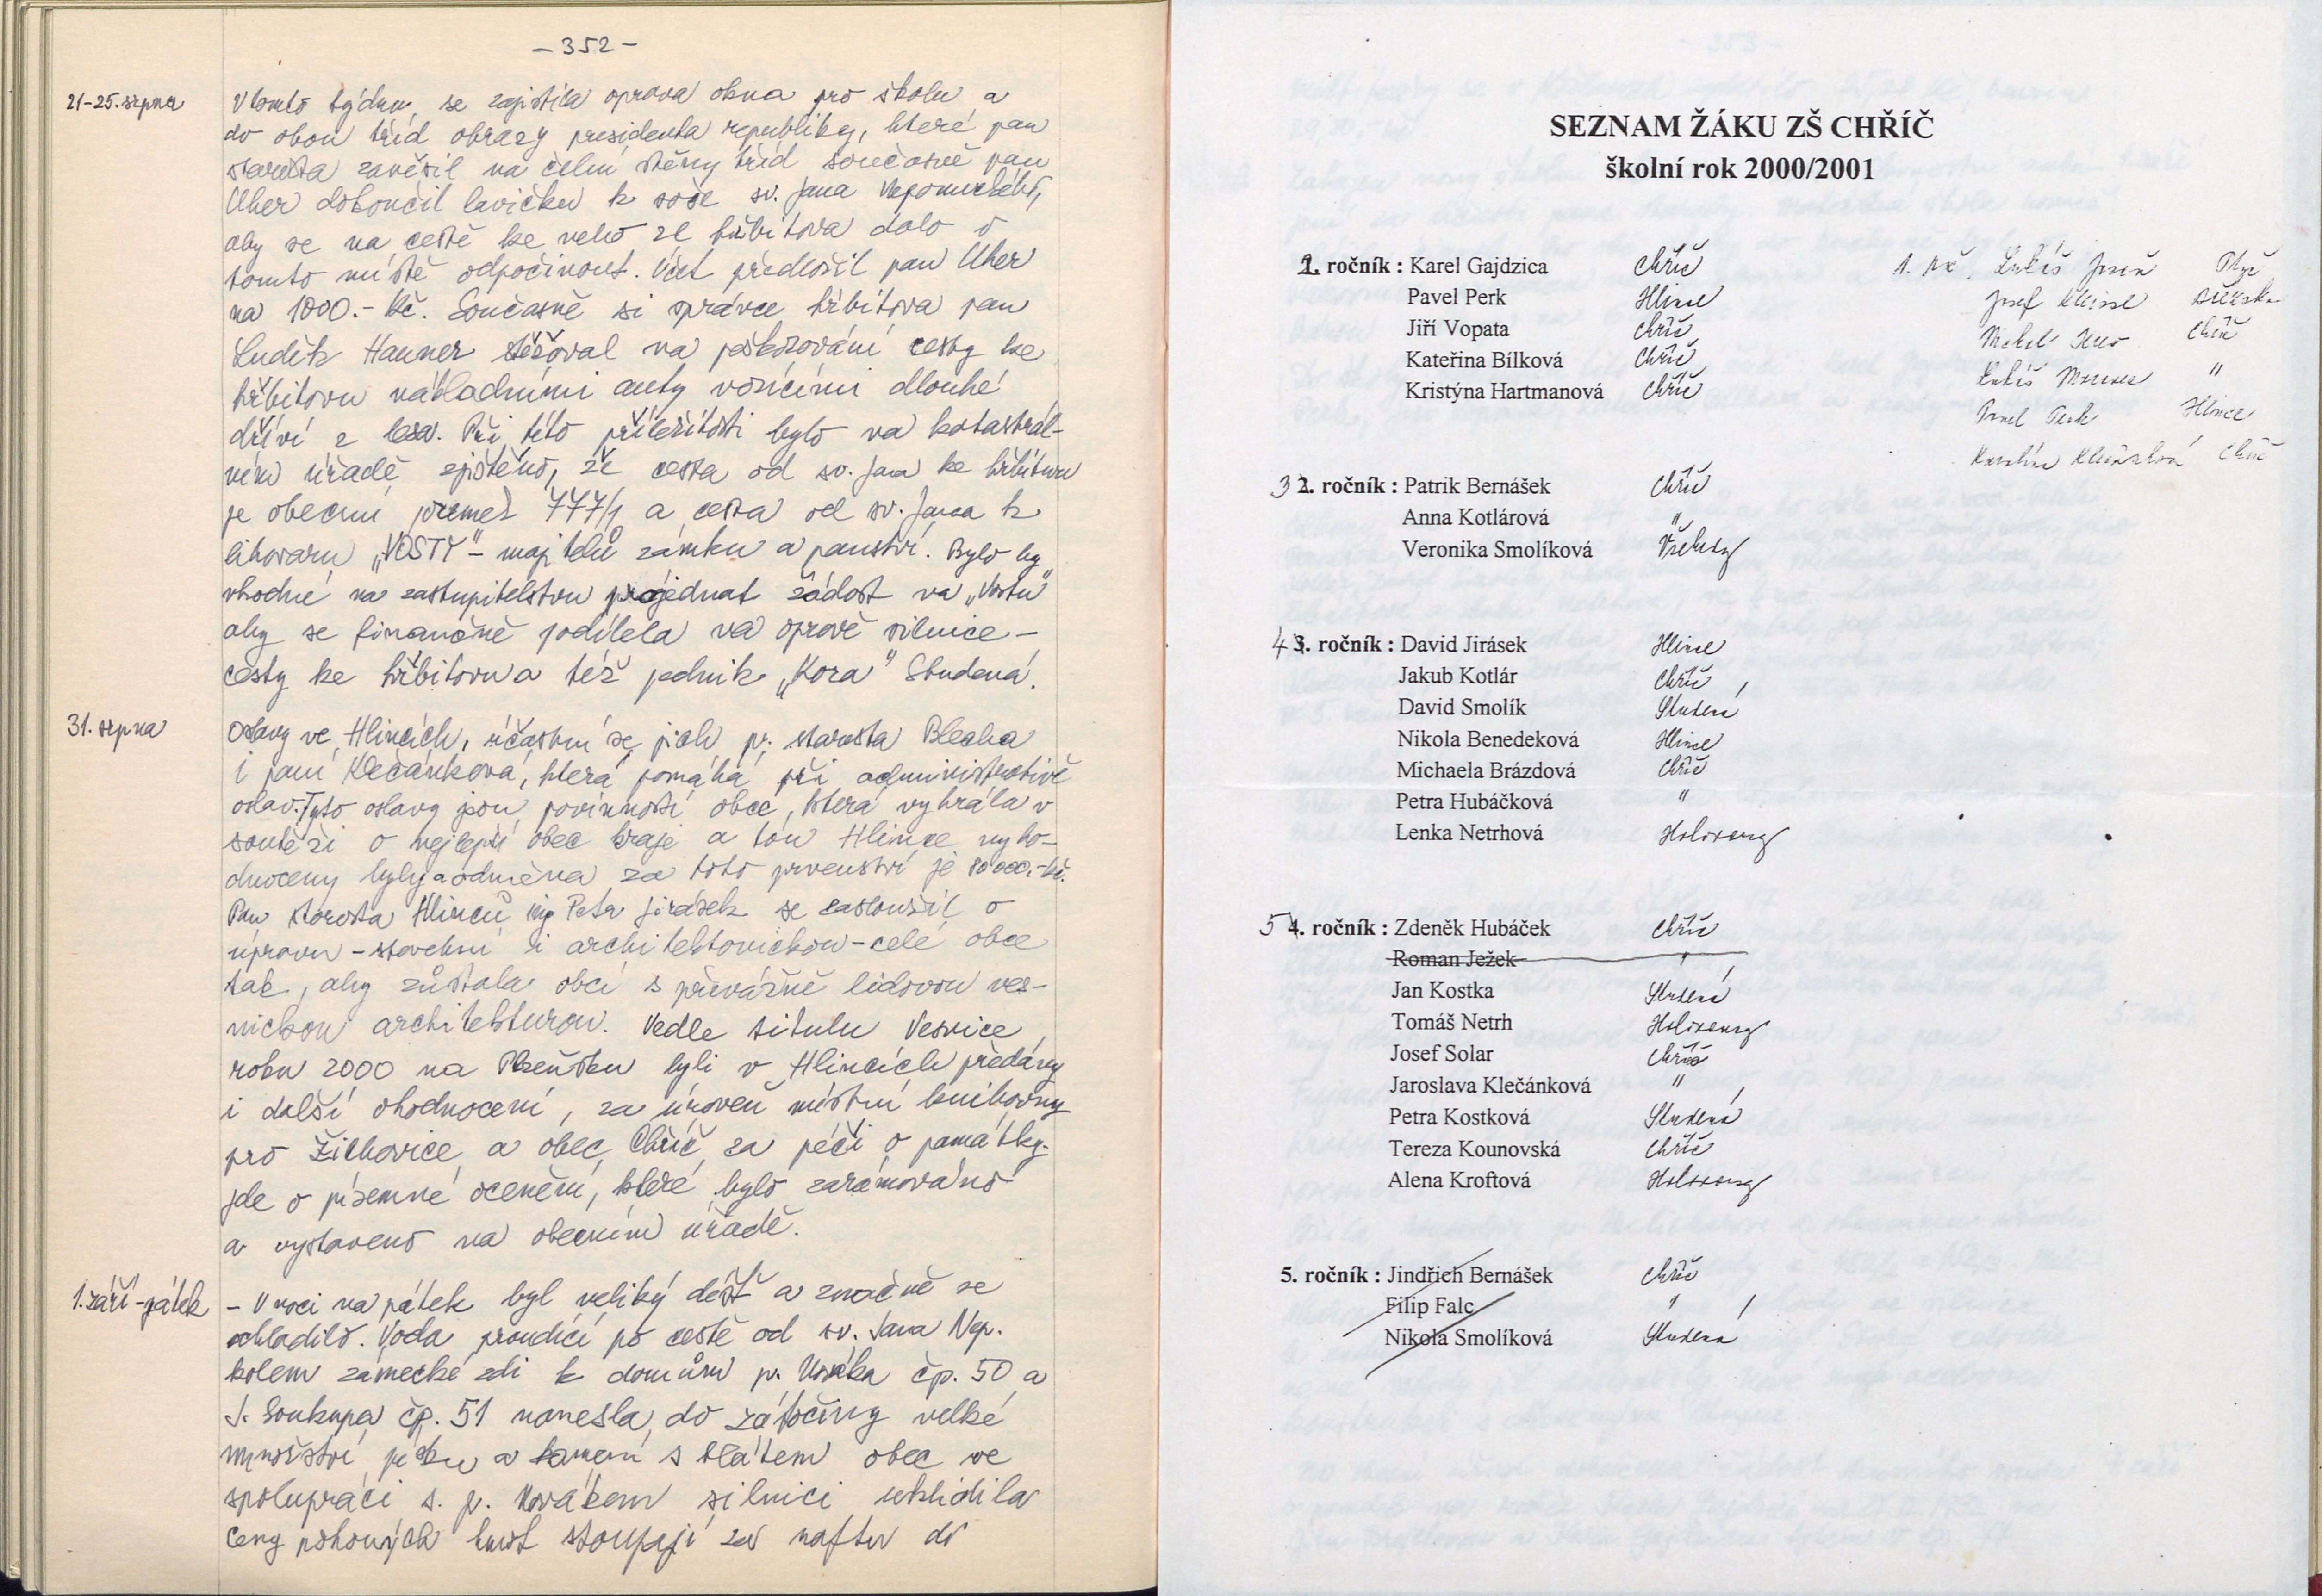 - 352 -
21-25. srpna
V tomto týdnu se zajistila oprava okna pro školu a
do obou tříd obrazy presidenta republiky, které pan
starosta zavěsil na čelní stěny tříd současně pan
Uher dokončil lavičku k soše sv. Jana Nepomuckého,
aby se na cestě ke nebo ze hřbitova dalo v
tomto místě odpočinout. Účet předložil pan Uher
na 1000.- Kč. Současně si správce hřbitova pan
Luděk Hauner stěžoval na poškozování cesty ke
hřbitovu nákladními auty vozícími dlouhé
dříví z lesa. Při této příležitosti bylo na katastrál-
ním úřadě zjištěno, že cesta od sv. Jana ke hřbitovu
je obecní 777/1 a cesta od sv. Jana k
lihovaru „VOSTY" - majitelů zámku a panství. Bylo by
vhodné na zastupitelstvu projednat žádost na „Vostu"
aby se finančně podílela na opravě silnice -
cesty ke hřbitovu a též podnik „Kora" Studená.
31. srpna
Oslavy ve Hlincích, účastní se jich p. starosta Blecha
i paní Klečánková, která pomáhá při administrativě
oslav. Tyto oslavy jsou povinností obce, která vyhrála v
soutěži o nejlepší obec kraje a tou Hlince vyho-
dnoceny byly a odměna za toto prvenství je 80 000.- Kč.
Pan starosta Hlinců ing Petr Jirásek se zasloužil o
úpravu - stavební i architektonickou - celé obce
tak, aby zůstala obcí s převážně lidovou ves-
nickou architekturou. Vedle titulu Vesnice
roku 2000 na Plzeňsku byli v Hlincích předány
i další ohodnocení, za úroveň místní knihovny
pro Žichovice a obec Chříč za péči o památky.
Jde o písemné ocenění, které bylo zarámováno
a vystaveno na obecním úřadě.
1. září - pátek
- V noci na pátek byl veliký déšť a značně se
ochladilo. Voda proudící po cestě od sv. Jana Nep.
kolem zámecké zdi k domům p. Nováka čp. 50 a
J. Soukupa čp. 51 nanesla do zátočiny velké
množství písku a kamení s blátem obec ve
spolupráci s. p. Novákem silnici uklidila
Ceny pohonných hmot stoupají za naftu do
SEZNAM ŽÁKU ZŠ CHŘÍČ
školní rok 2000/2001
2. ročník : Karel Gajdzica Chříč
Pavel Perk Hlince
Jiří Vopata Chříč
Kateřina Bílková Chříč
Kristýna Hartmanová Chříč
1. roč. Lukáš
Josef
Chříč
Lukáš "
Pavel Perk Hlince
Karolína Klečánková Chříč
3 2. ročník : Patrik Bernášek Chříč
Anna Kotlárová "
Veronika Smolíková Všehrdy
4 3. ročník : David Jirásek Hlince
Jakub Kotlár Chříč
David Smolík Studená
Nikola Benedeková Hlince
Michaela Brázdová Chříč
Petra Hubáčková "
Lenka Netrhová Holovousy
5 4. ročník : Zdeněk Hubáček Chříč
Roman Ježek "
Jan Kostka Studená
Tomáš Netrh Holovousy
Josef Solar Chříč
Jaroslava Klečánková "
Petra Kostková Studená
Tereza Kounovská Chříč
Alena Kroftová Holovousy
5. ročník : Jindřich Bernášek Chříč
Filip Falc "
Nikola Smolíková Studená